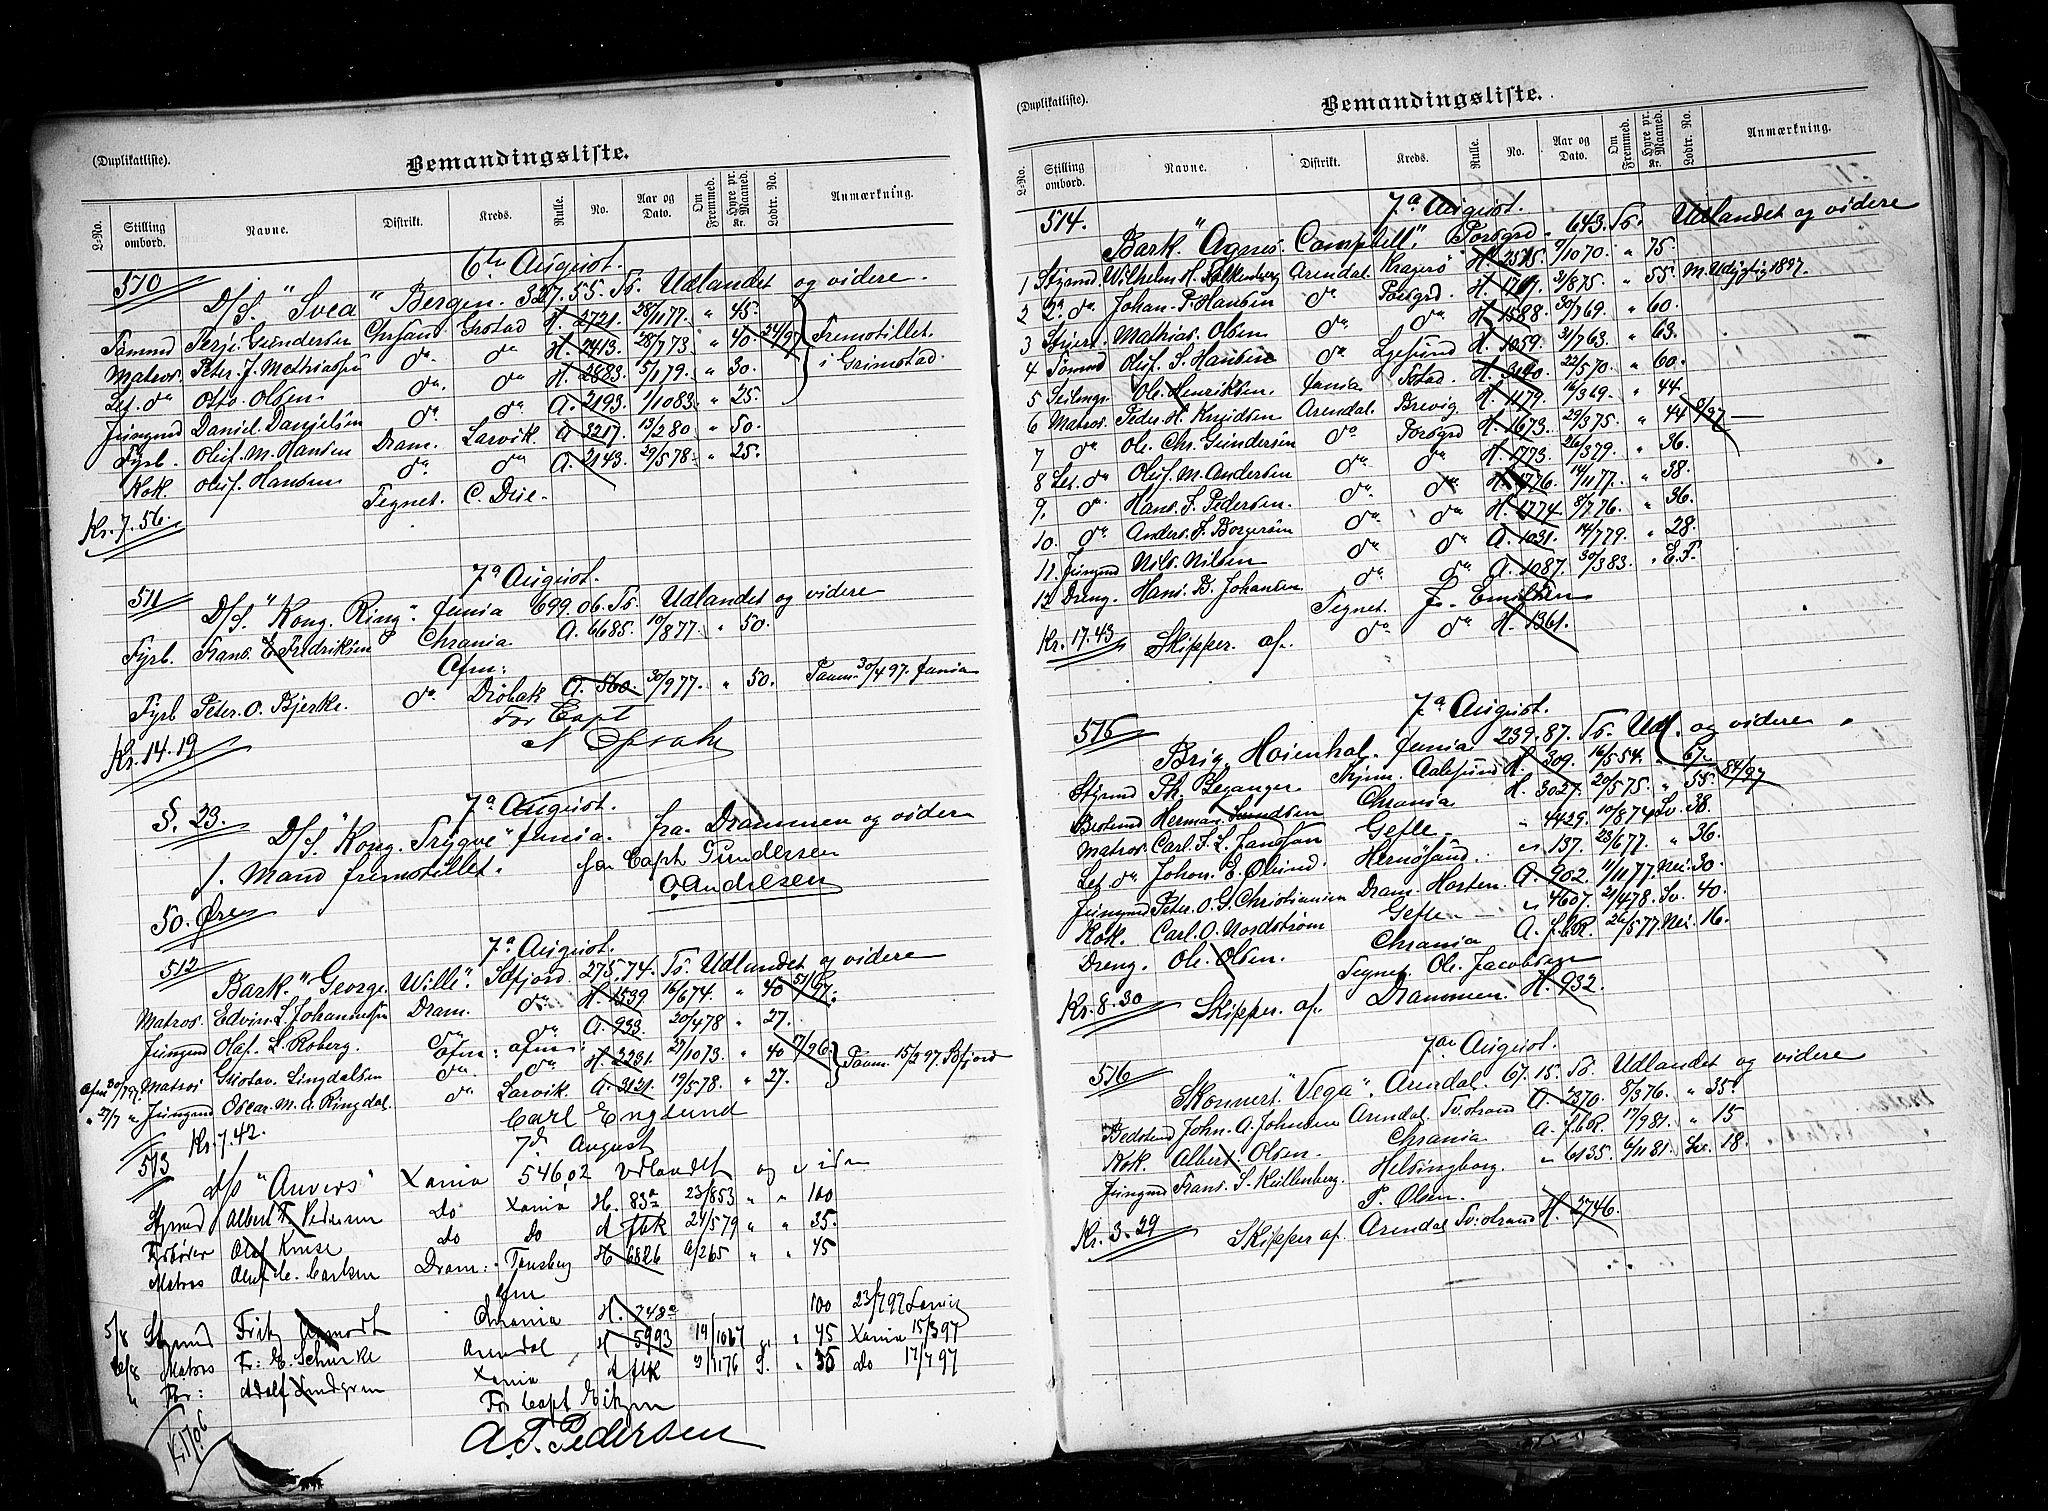 (Duplikatliste).
Bemandingsliste.
L-No. Stilling ombord. Navne. Distrikt. Kreds. Rulle. No. Aar og Dato. Om Fremmed. Hyre pr. Maaned. Kr. Lodtr. No. Anmærkning.
6te August.
510
D/S. "Svea" Bergen. 327.55. Ts. Udlandet og videre.
Tømmd Terje Gundersen Chrsand Grstad H. 2721. 28/1177. " 45.
Matros. Peter J. Mathiassen do. do H. 2413. 28/773. " 40. 24/97 Fremstillet
Let. do Otto Olsen do. do H. 2883. 5/179. " 30. i Grimstad.
Jungmd Daniel Danielsen do. do A. 2193. 1/1083. " 25.
Fyrb. Oluf M. Hansen Dram. Larvik. A. 3217. 13/280. " 50.
Kok. Oluf. Hansen do. do A. 2143. 29/578. " 25.
Tegnet. C. Due.
Kr. 7.56.
7a August.
511
D/S. "Kong. Ring". Xania 699.06. Ts. Udlandet og videre
Fyrb. Frans. E. Fredriksen Chrania. A. 6685. 10/877. " 50.
Afm:
Fyrb Peter. O. Bjerke. do Drøbak A. 560. 30/977. " 50. Paam. 30/4 97. Xania
For Capt
Kr. 14.19
§. 23.
7a August.
D/S "Kong. Trygve" Xania. fra. Drammen og videre
1. Mand fremstillet. for Capt Gundersen
O Andresen
50. Øre
7a August.
512
Bark. "George Wille". Sdfjord. 275.74. Ts. Udlandet og videre
Matros. Edvin. L. Johannesen Dram. do H. 1539 16/674. " 40 51/97.
Jungmd Olaf. L. Roberg. do do A. 933. 20/478 " 27.
afm: afm:
Afm 30/7 97. Matros Gustav. Lingdalsen do. do H. 2231. 27/1073. " 40 17/96. Paam. 15/2 97 Sdfjord
" 27/7 " Jungmd Oscar. M. A. Ringdal. do Larvik. A. 3121. 19/578. " 27.
Carl Englund
Kr. 7.42.
7d August
513
D/S "Anvers" Xania 546,02 Udlandet og videre
Stymd Albert F. Pedersen do Xania H. 83a 23/853 " " 100
Fyrbøter Olaf Kruse do do A fbk 24/579 " " 35.
Matros Oluf C. Carlsen Dram: Tønsberg H 6826 9/265 " " 45
Afm
5/8 Stymd Fritz Chrania H. 748a 100 23/7 97 Larvig
6/8 Matros Fr: E. Schurke Arendal H 5993 14/1067 " 45 Xania 15/3 97
" Fbr: Adolf Lindgren Xania A fbk 3/1176 S. " 35 do 17/7 97
For Capt
A. F. Pedersen
Kr. 17,06
(Duplikatliste).
Bemandingsliste.
L-No. Stilling ombord. Navne. Distrikt. Kreds. Rulle. No. Aar og Dato. Om Fremmed. Hyre pr. Maaned. Kr. Lodtr. No. Anmærkning.
7a August.
514.
Bark. "Agnes Campbell". Porsgrd. 643. Ts. Udlandet og videre
1 Styrmd Wilhelm H. Falkenberg Arendal Kragerø H. 2575. 9/1070. " 75.
2 2. do. Johan. P. Hansen do Porsgrd. H. 1761. 21/875. " 55. M. Udygtig 1897.
3 Stuert. Mathias. Olsen do do H. 1588. 30/769. " 60.
4 Tømmd Oluf. S. Hansen do Lgesund H. 1059. 31/763. " 63.
5 Seilmgr. Ole. Henriksen. Xania. Fstad. H. 3100. 22/570. " 60.
6 Matros. Peder. H. Knudsen Arendal. Brevig. H. 1179. 16/369. " 44.
7 do Ole. Chr. Gundersen do Porsgrd H. 1673. 29/375. " 44 9/97
8 Let. do Oluf. M. Andersen do. do H. 1773. 26/379. " 36.
9. do. Hans. F. Pedersen. do do H. 1776. 14/1177. " 38.
10. do Anders. F. Borgersen do do. H. 1774. 8/776. " 36.
11. Jungmd Nils. Nilsen do do A. 1031. 14/779. " 28.
12 Dreng. Hans. B. Johansen do do A. 1087. 30/383. " E.F.
Tegnet. J. Emilsen
Kr. 17.43 Skipper. af. do do H. 1361.
7a August.
515
Brig. Høienhal. Xania 239.87. Ts. Udl. og videre.
Styrmd Th. Beganger. Trjem. Aalesund H. 309. 16/554. " 67. 84/97
Bestmd Herman. Chrania H. 3027. 20/575. " 55.
Matros. Carl. F. L. Jansson Gefle " 4429. 10/874 Sv. 38.
Let do Johan. E. Ølund. Hernøsand. " 137. 23/677. " 36.
Jungmd Peter. O. G. Christiansen Dram. Horten. A. 902. 11/1177. Nei. 30.
Kok. Carl. O. Nordstrøm Gefle " 4607. 21/478. Sv. 40.
Dreng. Ole. Olsen. Chrania A. f.b.R. 26/577. Nei. 16.
Tegnet. Ole. Jacobsen
Kr. 8.30 Skipper af. Drammen. H. 932.
7de August.
516
Skonnert "Vega". Arendal. 67.15. Ts. Udlandet og videre
Bedstmd John. A. Johnsen Arendal Tv:strand A. 2370. 8/376. " 35.
Kok. Albert. Olsen. Chrania A. f.b.R. 17/981. " 15
Jungmd Frans. S. Kullenberg. Helsingborg. " 6135. 6/1181. Sv. 18.
P. Olsen.
Kr. 3.29 Skipper af. Arendal Tv:strand H. 2746.